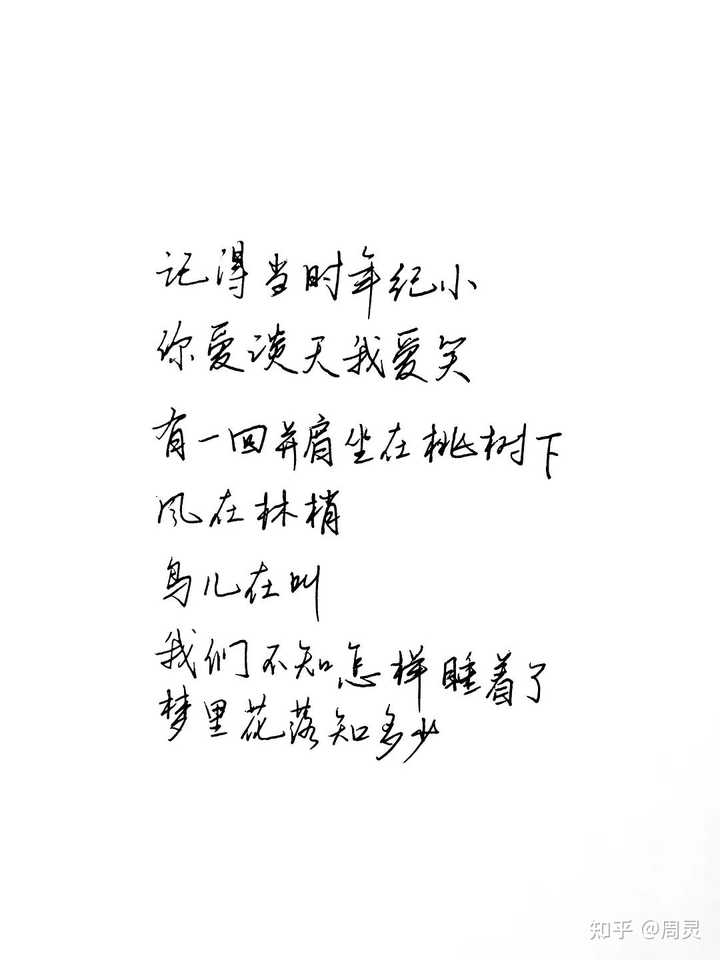 记得当时年纪小
你爱谈天我爱笑
有一回并肩坐在桃树下
风在林梢
鸟儿在叫
我们不知怎样睡着了
梦里花落知多少
知乎 @周灵